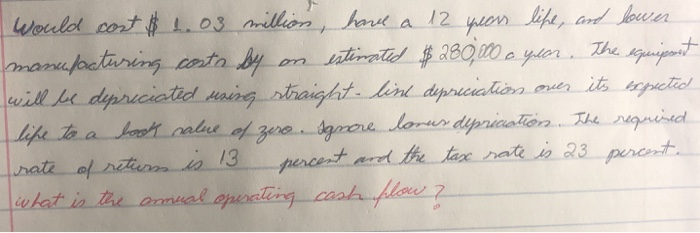 Would cost $ 1.03 million, have a 12 year life, and lower
manufacturing costs by an estimated $ 280,000 a year. The equipment
will be depreciated using straight-line depreciation over its expected
life to a book value of zero. Ignore bonus depreciation. The required
rate of return is 13 percent and the tax rate is 23 percent.
what is the annual operating cash flow?